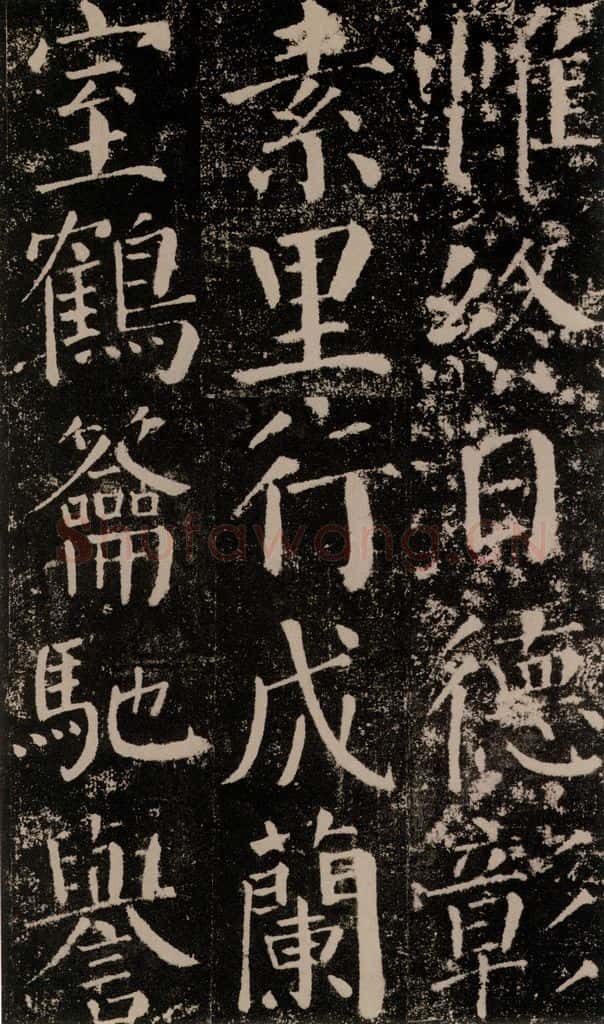 惟終日德彰
素里行成蘭
室鶴籥馳譽
Shufawang.CN